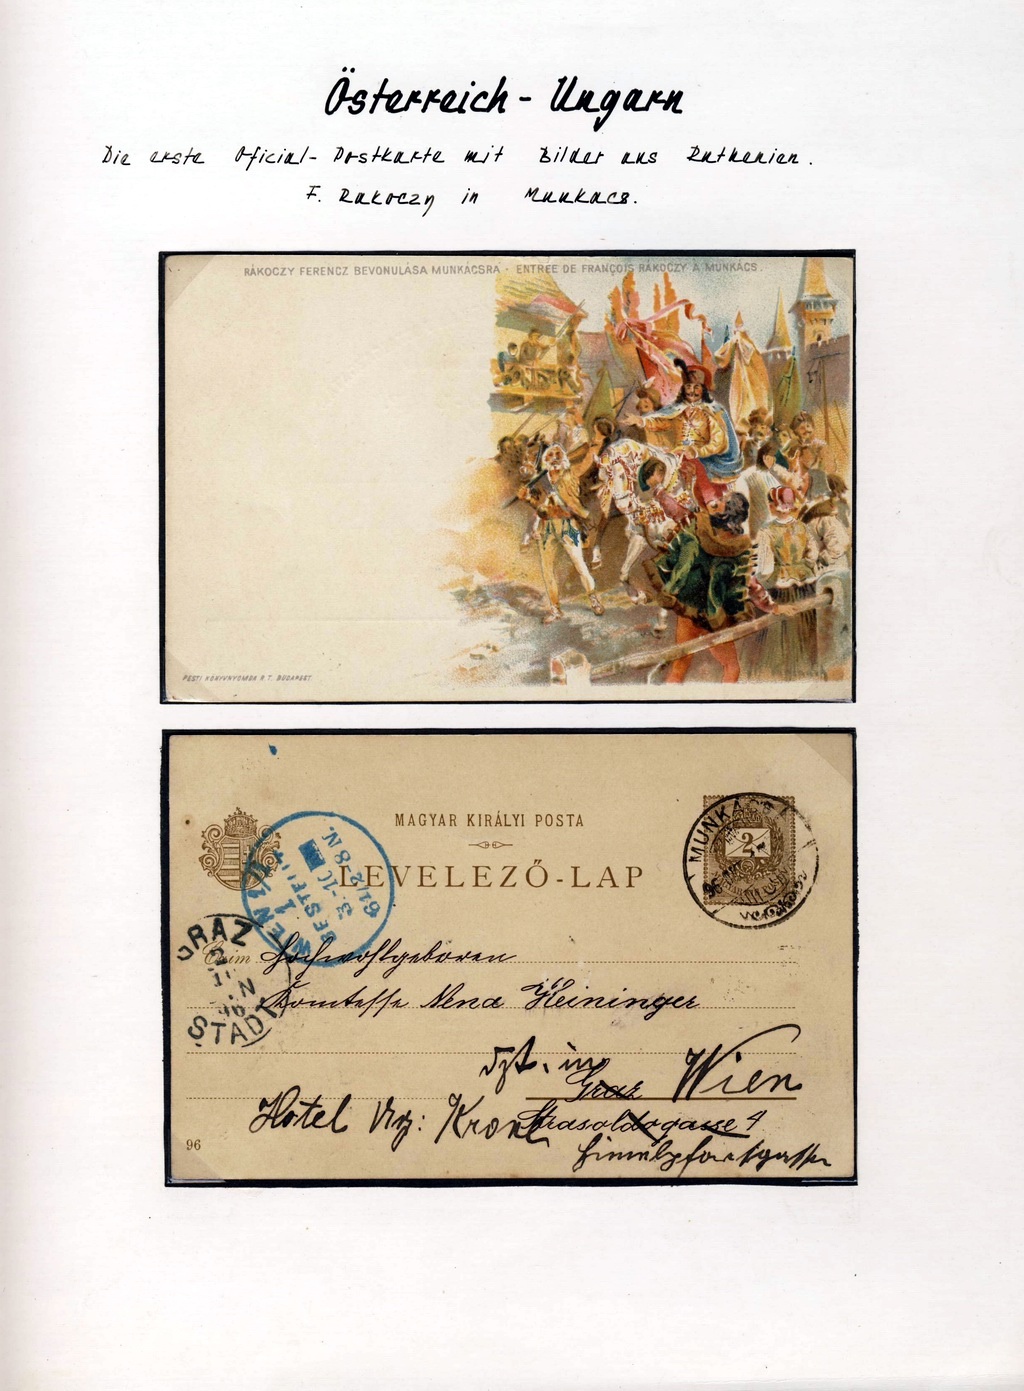 Österreich - Ungarn
Die erste Oficial - Postkarte mit Bilder aus Ruthenien.
F. Rakoczy in Munkacs.
RÁKOCZY FERENCZ BEVONULÁSA MUNKÁCSRA - ENTRÉE DE FRANÇOIS RÁKOCZY À MUNKÁCS.
PESTI KÖNYVNYOMDA R.T. BUDAPEST.
MAGYAR KIRÁLYI POSTA
LEVELEZŐ-LAP
MUNKÁCS
2
WIEN
BESTELLT
1
3.10
GRAZ
STADT
Czim Hochwohlgeboren
Komtesse Nena Heininger
dzt. in Graz Wien
Hotel Krone Strasoldogasse 4
96